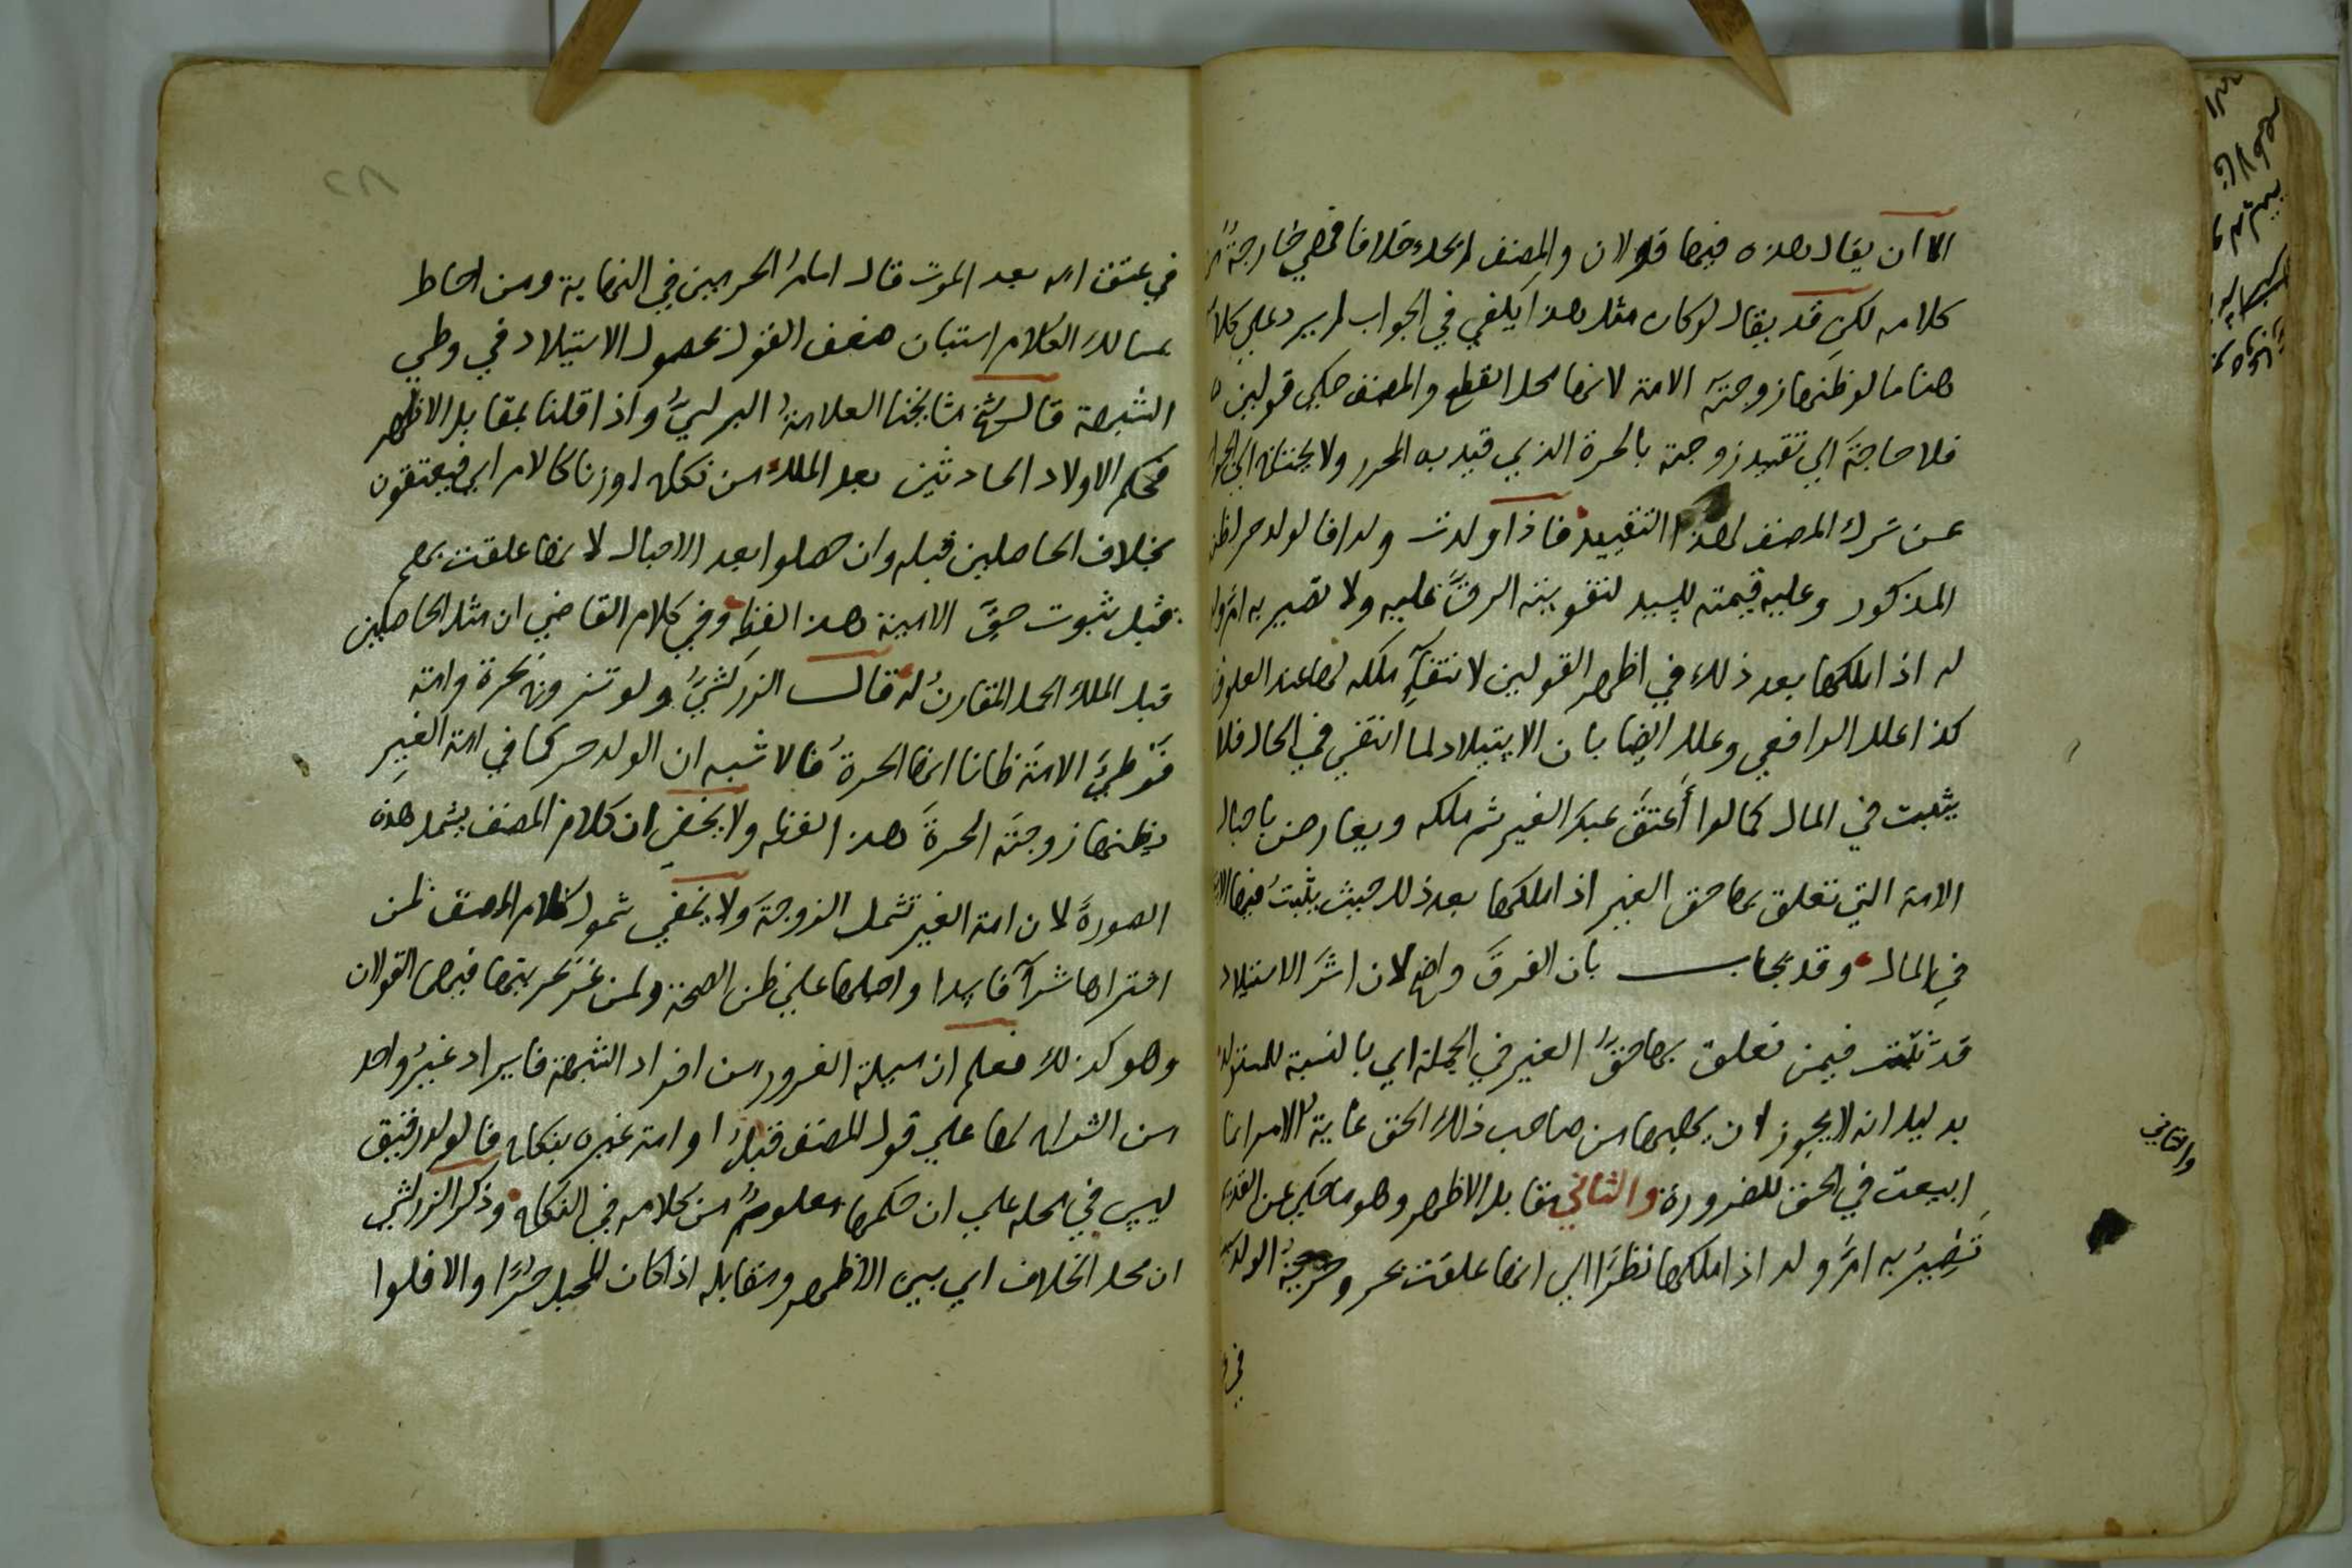 الا ان يقال هذه فيها قولان والمصنف لم يحك خلافا فهي خارجة
كلامه لكن قد يقال لو كان مثل هذا يكفي في الجواب لم يرد على
هنا ما لو ظنها زوجته الامة لانها محل القطع والمصنف حكى قولين
فلا حاجة الي تقييد زوجته بالحرة الذي قيد به المحرر ولا يحتاج الي
عن ترك المصنف لهذا التقييد فاذا ولدت ولدا فالولد حر
المذكور وعليه قيمته للسيد لتفويته الرق عليه ولا تصير به ام ولد
له اذا ملكها بعد ذلك في اظهر القولين لانتفآء ملكه لها عند العلوق
كذا علله الرافعي وعلله ايضا بان الاستيلاد لما انتفى في الحال فلا
يثبت في المال كما لو اعتق عبد الغير ثم ملكه ويعارض باحبال
الامة التي تعلق بها حق الغير اذا ملكها بعد ذلك حيث يثبت فيها
في المال وقد يجاب بان الفرق واضح لان اثر الاستيلاد
قد ثبت فيمن تعلق بها حق الغير في الجملة اي بالنسبة للمستولد
بدليل انه لا يجوز ان يهبها من صاحب ذلك الحق غاية الامر انها
ابيعت في الحق للضرورة والثاني مقابل الاظهر وهو ما حكي عن القديم
تصير به ام ولد اذا ملكها نظرا الى انها علقت بحر وحرية الولد
والثاني
في
في عتق امه بعد الموت قال امام الحرمين في النهاية ومن احاط
بمسالك الكلام استبان ضعف القول بحصول الاستيلاد في وطي
الشبهة قال شيخ مشايخنا العلامة البرلسي واذا قلنا بمقابل الاظهر
فحكم الاولاد الحادثين بعد الملك من نكاح او زنا كالام اي فيعتقون
بخلاف الحاصلين قبله وان حصلوا بعد الاحبال لانها علقت بهم
قبل ثبوت حق الامية هذا لفظه وفي كلام القاضي ان مثل الحاصلين
قبل الملك الحمل المقارن له قال الزركشي ولو تزوج بحرة وامة
فوطي الامة ظانا انها الحرة فالاشبه ان الولد حر كما في امة الغير
يظنها زوجته الحرة هذا لفظه ولا يخفى ان كلام المصنف يشمل هذه
الصورة لان امة الغير تشمل الزوجة ولا يخفي شمول كلام المصنف لمن
اشتراها شرآ فاسدا واحبلها علي ظن الصحة ولمن غر بحريتها فيها القولان
وهو كذلك فعلم ان مسيلة الغرور من افراد الشبهة فايراد غير واحد
من الشراح لها علي قول المصنف قبل او امة غيره بنكاح فالولد رقيق
ليس في محله علي ان حكمها معلوم من كلامه في النكاح وذكر الزركشي
ان محل الخلاف اي بين الاظهر ومقابله اذا كان المحبل حرا والا فلو